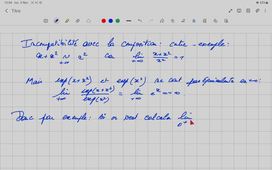 Incompatibilité avec la composition : contre-exemple :
x+x² ~ x² car lim x+x²/x² = 1
+∞ +∞
Mais exp(x+x²) et exp(x²) ne sont pas équivalents en +∞ :
lim exp(x+x²)/exp(x²) = lim eˣ = +∞
+∞ +∞
Donc par exemple : si on veut calculer lim